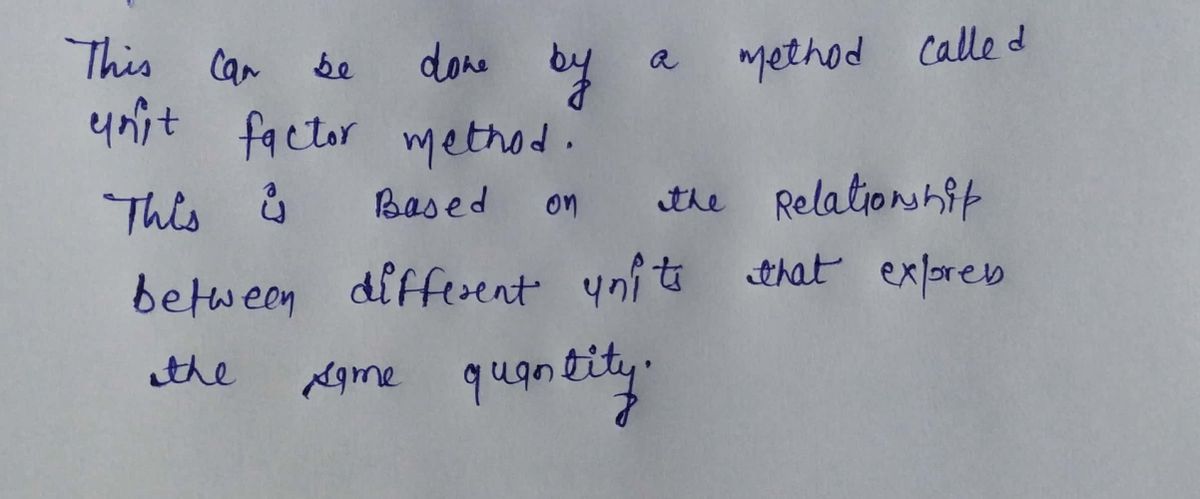 This can be done by a method called
unit factor method.
This is Based on the Relationship
between different units that express
the same quantity.